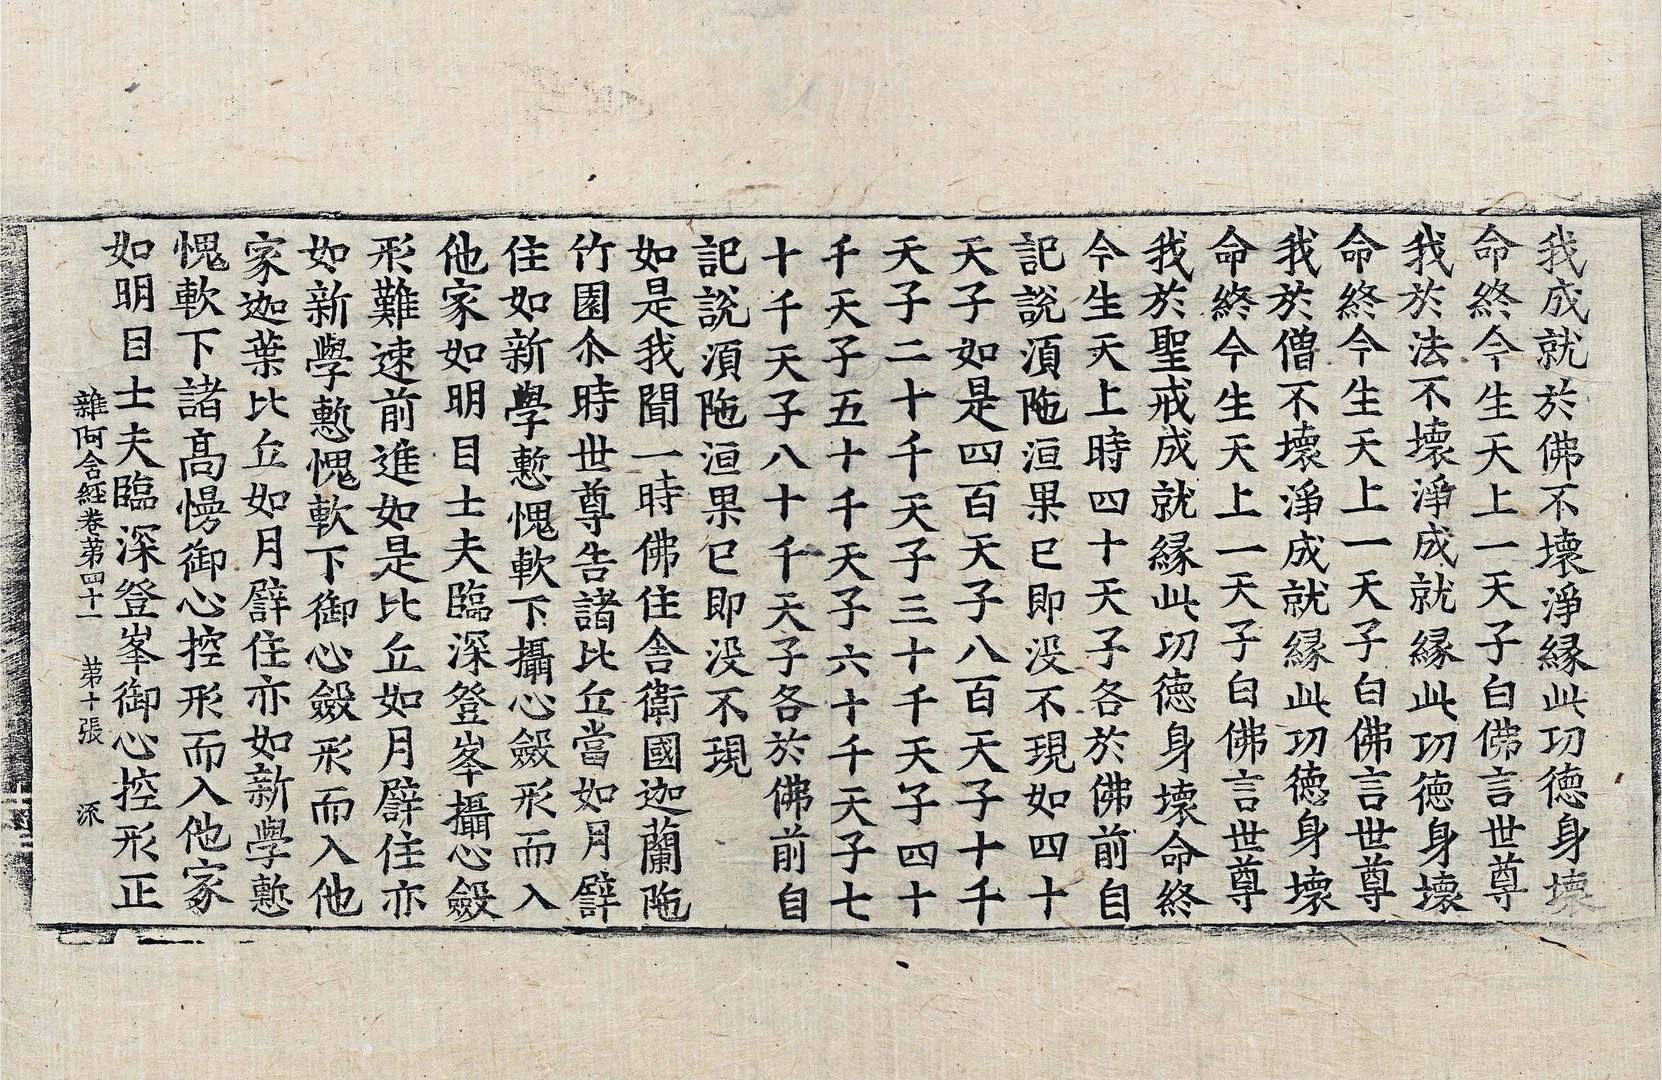 我成就於佛不壞淨縁此功德身壞
命終今生天上一天子白佛言世尊
我於法不壞淨成就縁此功德身壞
命終今生天上一天子白佛言世尊
我於僧不壞淨成就縁此功德身壞
命終今生天上一天子白佛言世尊
我於聖戒成就縁此功德身壞命終
今生天上時四十天子各於佛前自
記說湏陁洹果已即没不現如四十
天子如是四百天子八百天子十千
天子二十千天子三十千天子四十
千天子五十千天子六十千天子七
十千天子八十千天子各於佛前自
記說湏陁洹果已即没不現
如是我聞一時佛住舍衛國迦蘭陁
竹園尒時世尊告諸比丘當如月譬
住如新學慙愧軟下攝心斂形而入
他家如明目士夫臨深登峯攝心斂
形難速前進如是比丘如月譬住亦
如新學慙愧軟下御心斂形而入他
家迦葉比丘如月譬住亦如新學慙
愧軟下諸髙慢御心控形而入他家
如明目士夫臨深登峯御心控形正
雜阿含経卷苐四十一 苐十張 㳅